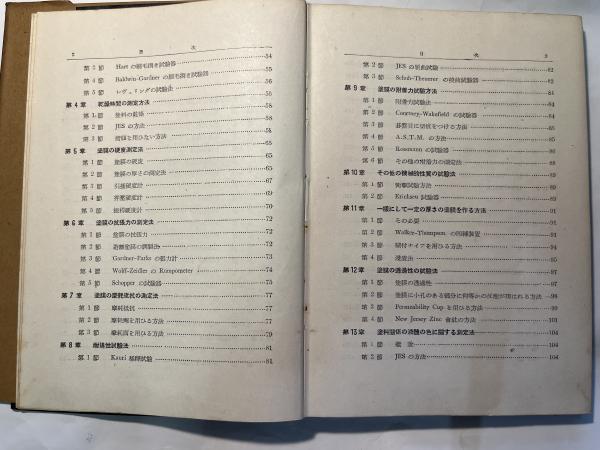 2 目次
第3節 Hart の刷毛捌き試験器 54
第4節 Baldwin-Gardner の刷毛捌き試験器 55
第5節 レヴェリングの試験法 56
第4章 乾燥時間の測定方法 58
第1節 塗料の乾燥 58
第2節 JES の方法 58
第3節 指頭を用ひない方法 65
第5章 塗膜の硬度測定法 65
第1節 塗膜の硬度 65
第2節 塗膜の厚さの測定法 65
第3節 引掻硬度計 67
第4節 昇壓硬度計 69
第5節 振桿硬度計 70
第6章 塗膜の抗張力の測定法 72
第1節 塗膜の抗張力 72
第2節 遊離塗膜の調製法 72
第3節 Gardner-Parks の張力計 73
第4節 Wolff-Zeidler の Rumpometer 74
第5節 Schopper の試験器 75
第7章 塗膜の磨耗抵抗の測定法 77
第1節 磨耗抵抗 77
第2節 摩耗劑を用ひる方法 77
第3節 磨耗面を用ひる方法 79
第8章 耐撓性試験法 81
第1節 Kauri 稀釋試験 81
目次 3
第2節 JES の屈曲試験 82
第3節 Schuh-Theuerer の撓曲試験器 82
第9章 塗膜の附着力試験方法 84
第1節 附着力試験法 84
第2節 Courtney-Wakefield の試験器 84
第3節 碁盤目に切疵をつける方法 85
第4節 A.S.T.M. の方法 85
第5節 Rossmann の試験器 86
第6節 その他の附着力の測定法 88
第10章 その他の機械的性質の試験法 89
第1節 衝撃試験方法 89
第2節 Erichsen 試験器 89
第11章 一様にして一定の厚さの塗膜を作る方法 91
第1節 その必要 91
第2節 Walker-Thompson の回轉裝置 91
第3節 刷付ナイフを用ひる方法 94
第4節 浸漬法 95
第12章 塗膜の透過性の試験法 97
第1節 塗膜の透過性 97
第2節 塗膜に小孔のある部分に何等かの反應が現はれる方法 98
第3節 Permeability Cup を用ひる方法 100
第4節 New Jersey Zinc 會社の方法 103
第13章 塗料溶劑の溶液の色に關する測定法 104
第1節 概說 104
第2節 JES の方法 104